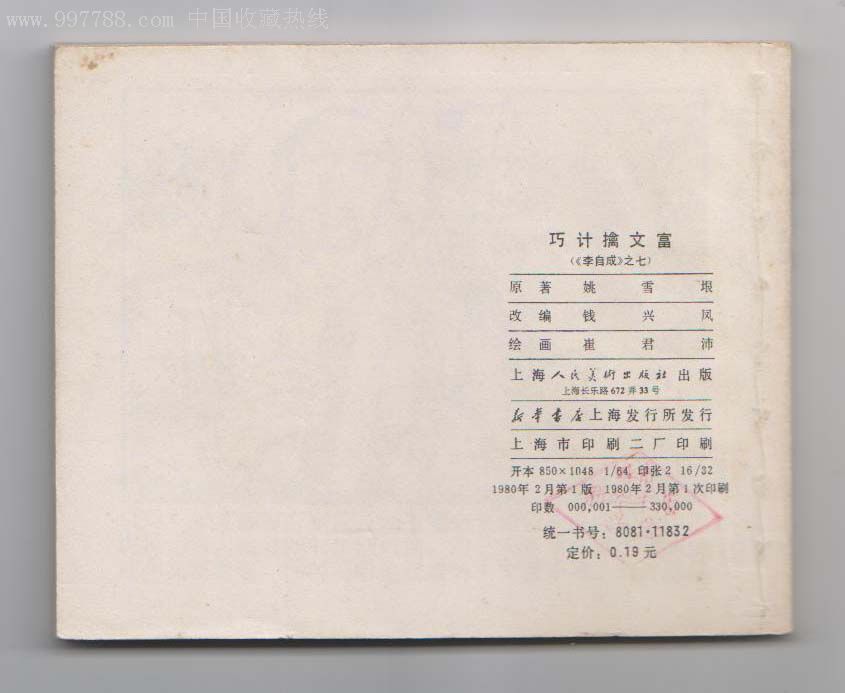 www.997788.com 中国收藏热线
巧计擒文富
(《李自成》之七)
原著 姚雪垠
改编 钱兴凤
绘画 崔君沛
上海人民美術出版社出版
上海长乐路672弄33号
新华书店上海发行所发行
上海市印刷二厂印刷
开本 850×1048 1/64 印张 2 16/32
1980年2月第1版 1980年2月第1次印刷
印数 000,001——330,000
统一书号: 8081·11832
定价: 0.19元